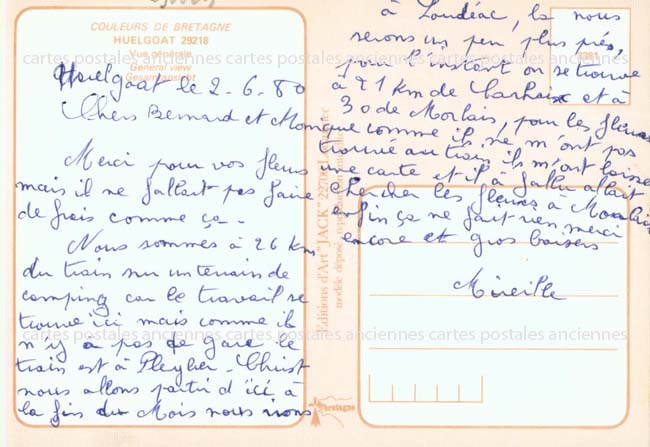 COULEURS DE BRETAGNE
HUELGOAT 29218
Vue générale
General view
Gesamtansicht
Huelgoat le 2-6.80
Chers Bernard et Monique
Merci pour vos fleurs
mais il ne fallait pas faire
de frais comme ça -
Nous sommes à 26 km
du train sur un terrain de
camping car le travail se
trouve ici mais comme il
n'y a pas de gare le
train est à Pleyber-Christ
nous allons partir d'ici à
la fin du Mois nous irons
à Loudéac, la nous
serons un peu plus près,
pour l'instant on se trouve
à 21 km de Carhaix et à
30 de Morlaix, pour les fleurs
comme ils ne m'ont pas
trouvé au train ils m'ont laissé
une carte et il a fallu allait
chercher les fleurs à Morlaix
enfin ça ne fait rien merci
encore et gros baisers
Mireille
Editions d'Art "JACK"
modèle déposé
bretagne
cartes postales anciennes cartes postales anciennes cartes postales anciennes
cartes postales anciennes cartes postales anciennes cartes postales anciennes